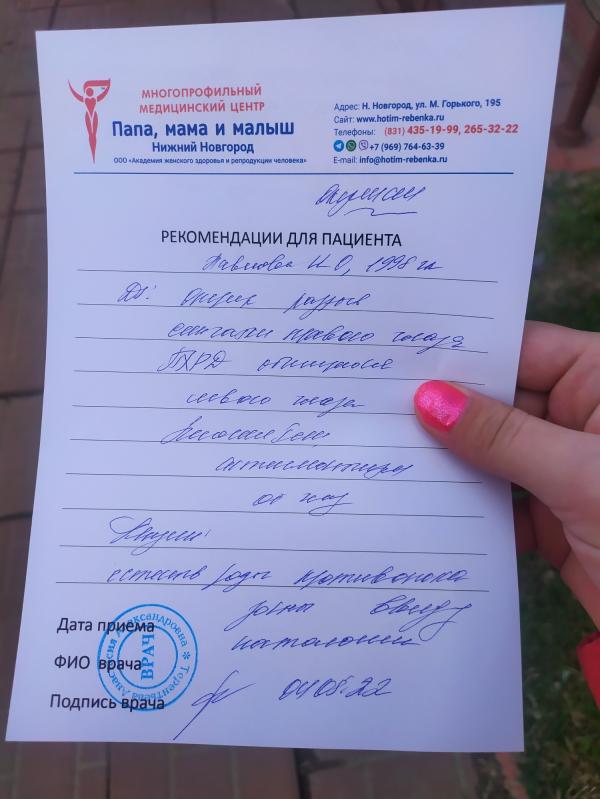 МНОГОПРОФИЛЬНЫЙ
МЕДИЦИНСКИЙ ЦЕНТР
Папа, мама и малыш
Нижний Новгород
ООО «Академия женского здоровья и репродукции человека»
Адрес: Н. Новгород, ул. М. Горького, 195
Сайт: www.hotim-rebenka.ru
Телефоны: (831) 435-19-99, 265-32-22
+7 (969) 764-63-39
E-mail: info@hotim-rebenka.ru
окулист
РЕКОМЕНДАЦИИ ДЛЯ ПАЦИЕНТА
1998 гр
DS: разрыв
сетчатки правого глаза
ПХРД
левого глаза
естеств роды противопока
заны ввиду
патологии
Дата приема
ФИО врача
Подпись врача
04.05.22
Терентьева Анастасия Александровна
ВРАЧ